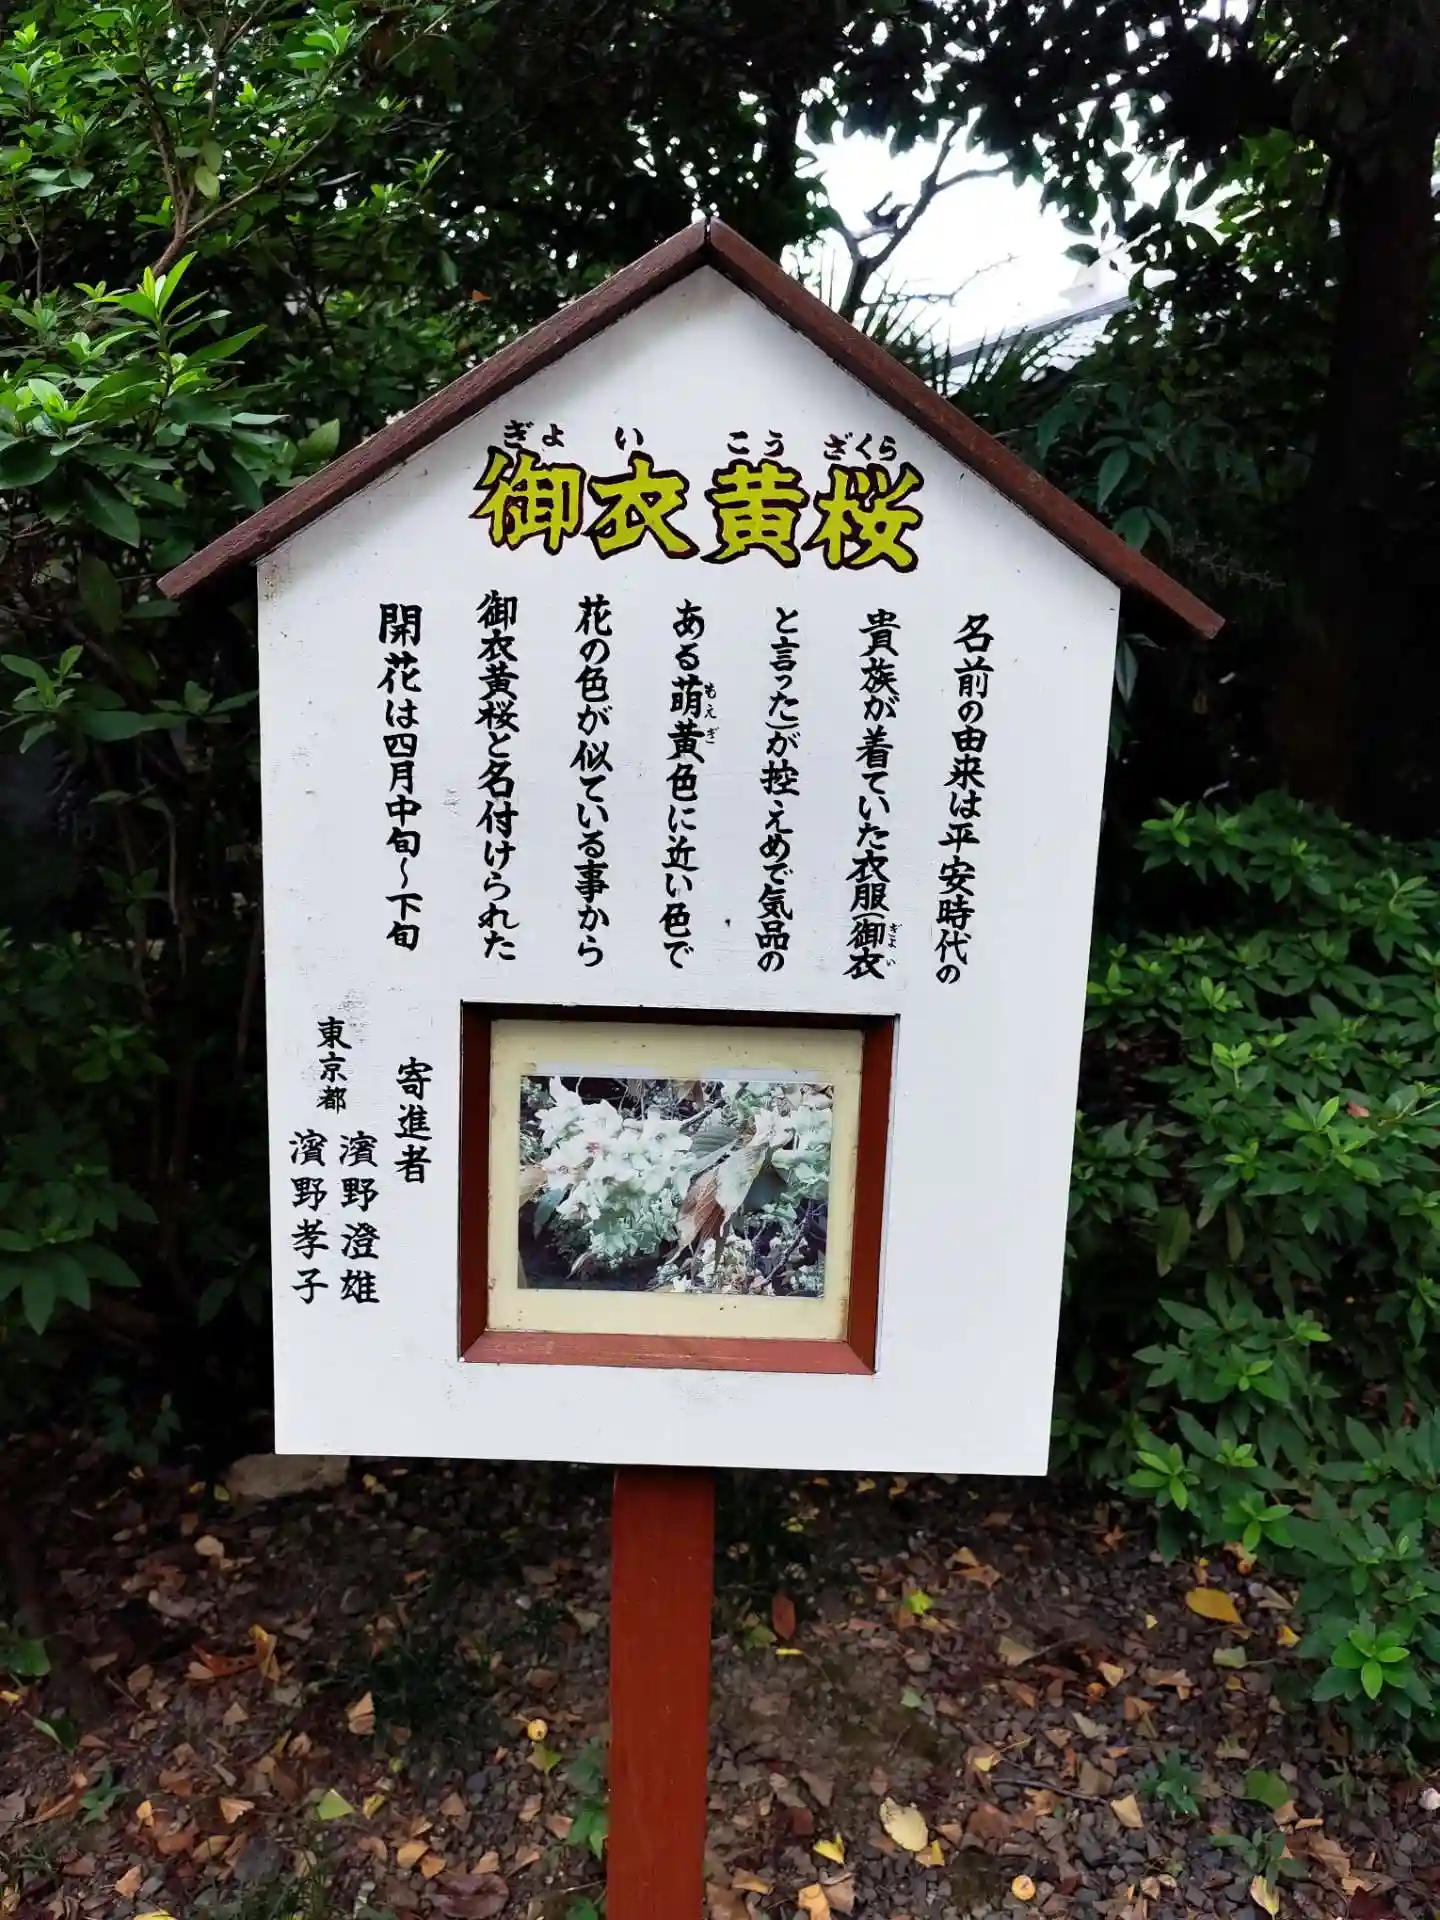 ぎょ い こう ざくら
御衣黄桜
名前の由来は平安時代の
貴族が着ていた衣服(御衣
ぎょ い
と言った)が控えめで気品の
ある萌黄色に近い色で
もえぎ
花の色が似ている事から
御衣黄桜と名付けられた
開花は四月中旬〜下旬
寄進者
東京都
濱野澄雄
濱野孝子